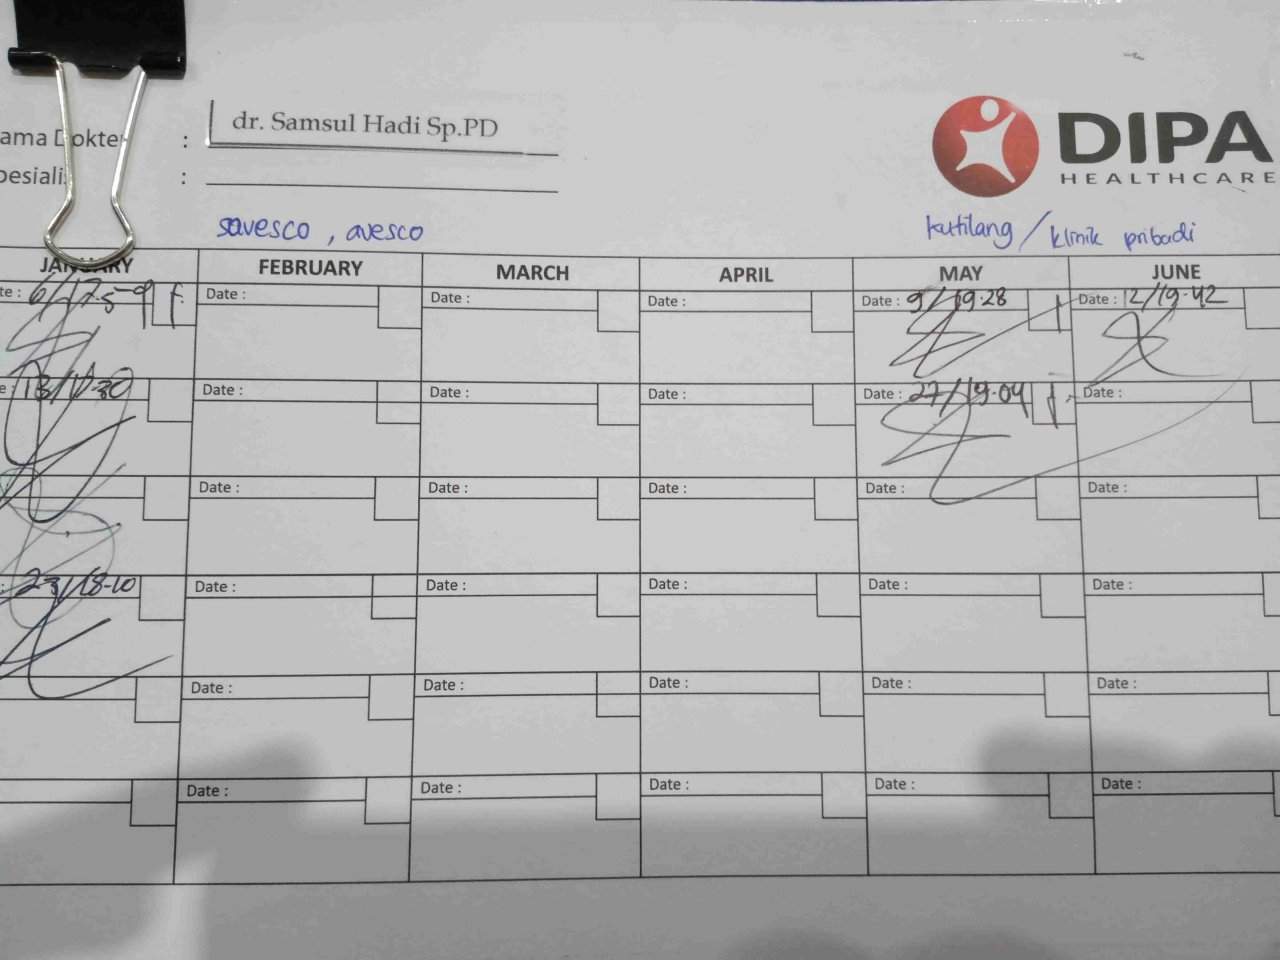 ama Dokte : dr. Samsul Hadi Sp.PD
pesialis :
DIPA
HEALTHCARE
savesco, avesco
kutilang / klinik pribadi
JANUARY FEBRUARY MARCH APRIL MAY JUNE
te: 6/17.59 Date : Date : Date : Date : 9/19.28 Date : 12/19.42
e: 13/17.30 Date : Date : Date : Date : 27/19.04 Date :
Date : Date : Date : Date : Date :
: 23/18.10 Date : Date : Date : Date : Date :
Date : Date : Date : Date : Date :
Date : Date : Date : Date : Date :